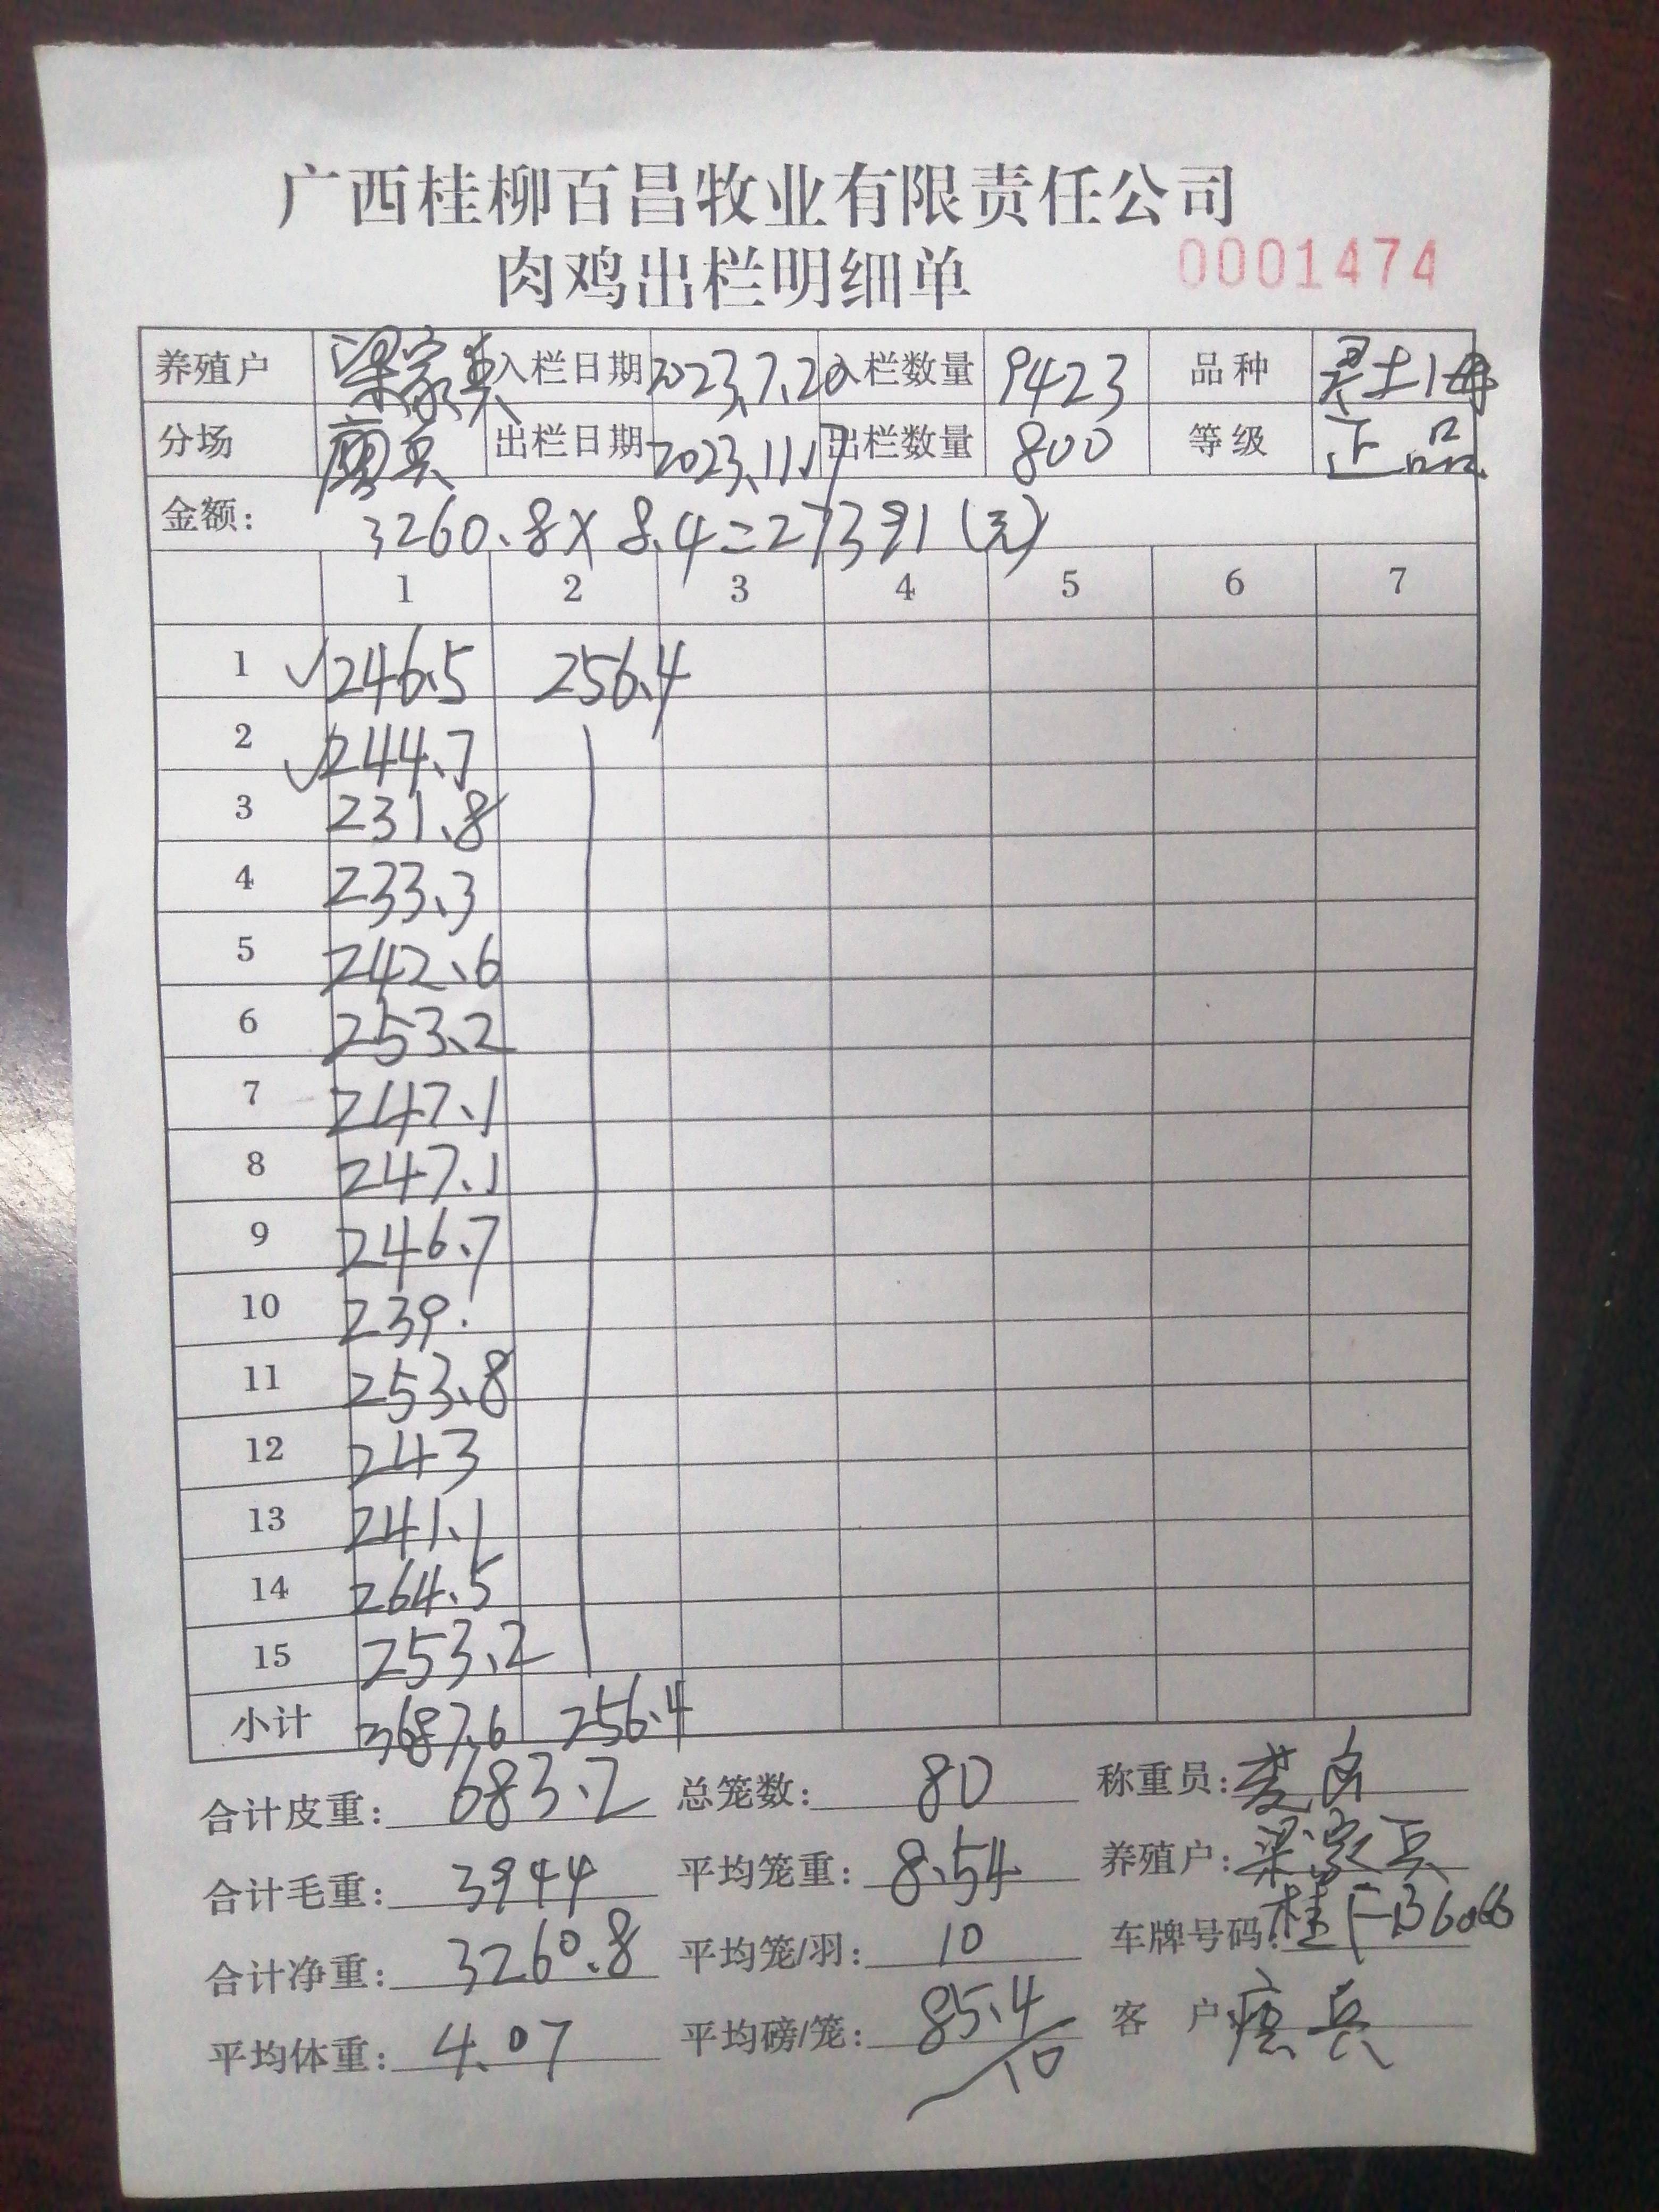 广西桂柳百昌牧业有限责任公司
肉鸡出栏明细单 0001474
养殖户 梁家兵 入栏日期 2023.7.20 入栏数量 9423 品种 灵土1母
分场 出栏日期 2023.11.17 出栏数量 800 等级 正品
金额: 3260.8×8.4=27391(元)
1 2 3 4 5 6 7
1 √246.5 256.4
2 √244.7
3 231.8
4 233.3
5 242.6
6 253.2
7 247.1
8 247.1
9 246.7
10 239.
11 253.8
12 243
13 241.1
14 264.5
15 253.2
小计 3687.6 256.4
合计皮重: 683.2 总笼数: 80 称重员:
合计毛重: 3944 平均笼重: 8.54 养殖户: 梁家兵
合计净重: 3260.8 平均笼/羽: 10 车牌号码: 桂F-B6066
平均体重: 4.07 平均磅/笼: 85.4/10 客 户 兵